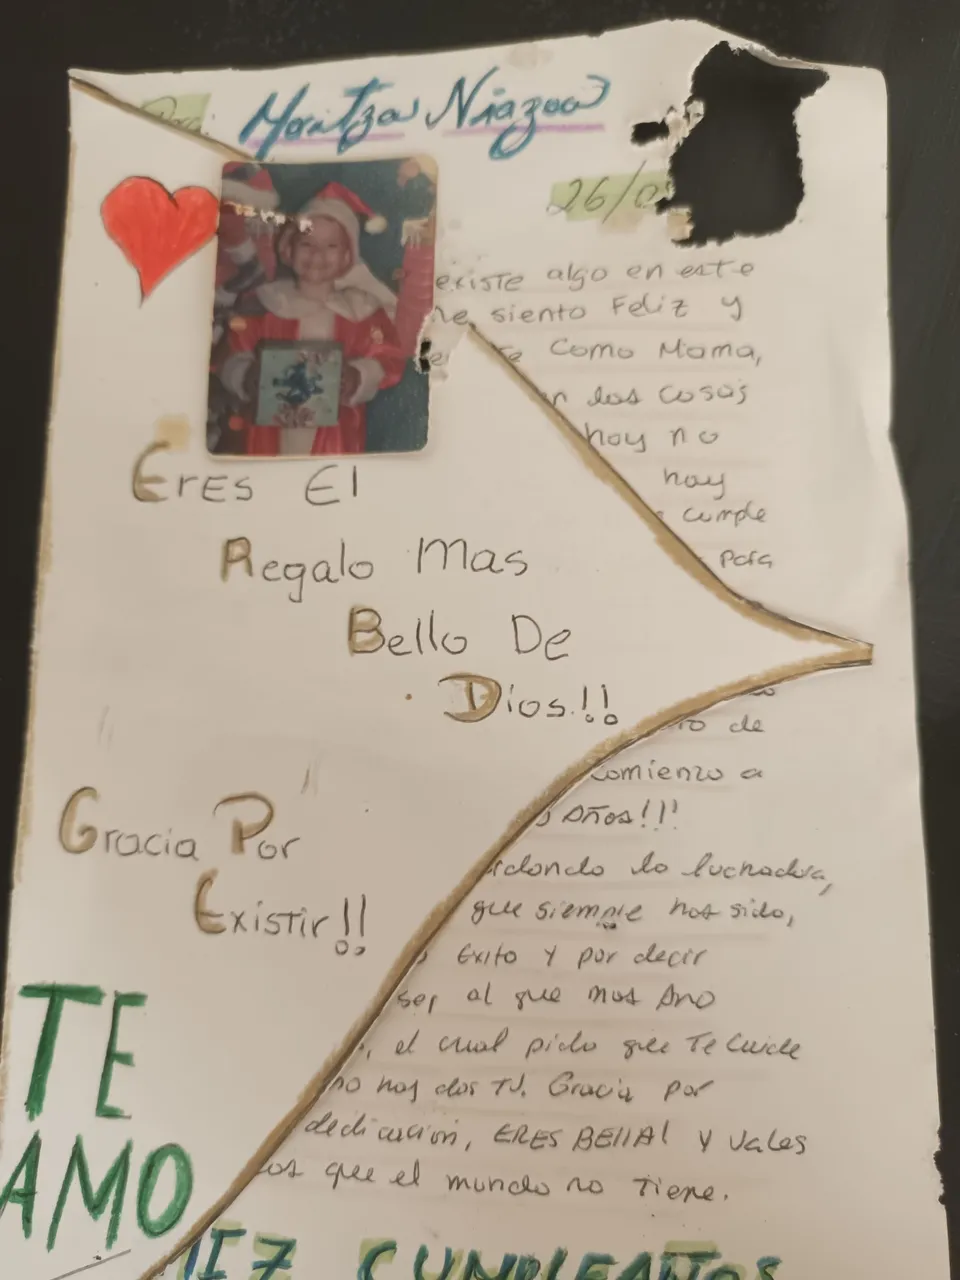 Para: Maritza Niazoa
26/0
existe algo en este
me siento Feliz y
Como Mama,
las cosas
hoy no
hay
cumple
para
Eres El
Regalo Mas
Bello De
Dios!!
de
comienzo a
Años!!!
Gracia Por
Existir!!
la luchadora,
que siempre has sido,
Exito y por decir
ser al que mas Amo
, el cual pido que Te Cuide
no hay dos TU. Gracia por
dedicación, ERES BEllA! y vales
que el mundo no Tiene.
TE
AMO
CUMPLEAÑOS